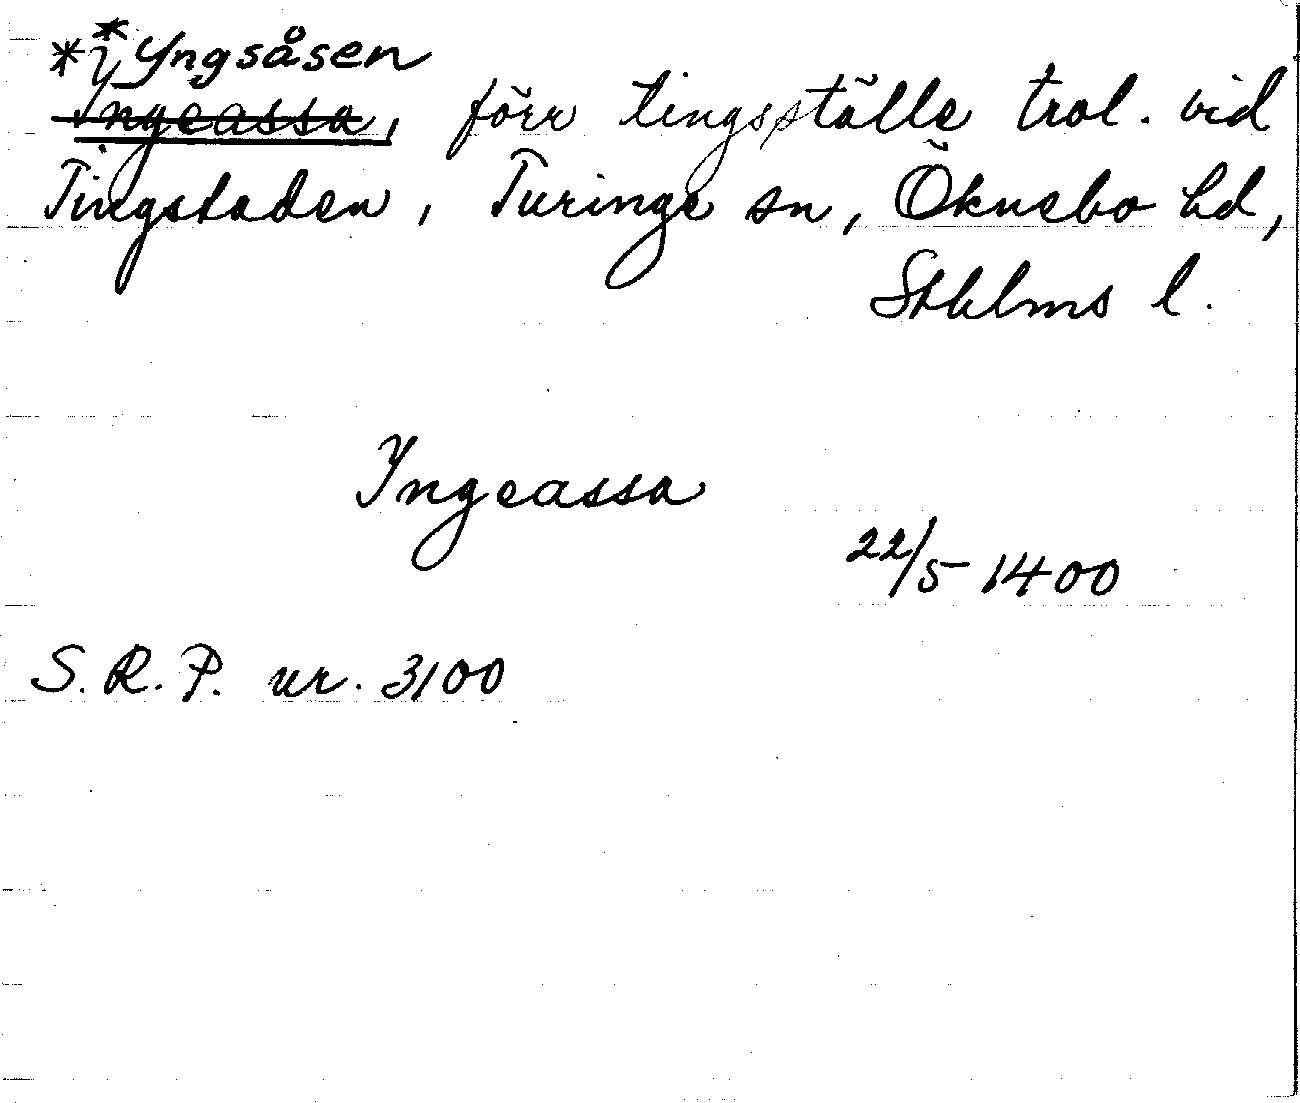 * * Yngsåsen
Yngeassa, förr tingsställe trol. vid
Tingstaden, Turinge sn, Öknebo hd,
Sthlms l.
Yngeassa
22/5 1400
S.R.P. nr. 3100